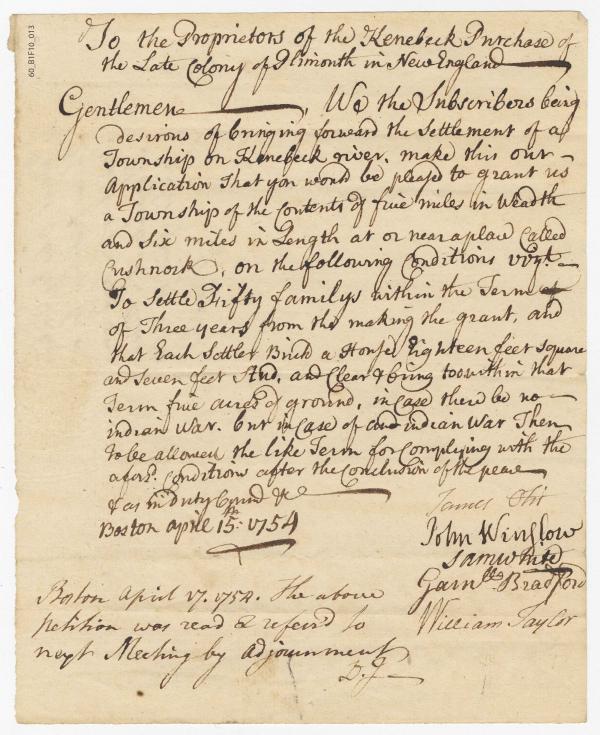 60_B1F10_013
To the Proprietors of the Kenebeck Purchase of
the Late Colony of Plimouth in New England
Gentlemen, We the Subscribers being
desirous of bringing forward the Settlement of a
Township on Kenebeck river. make this our
Application That you would be please to grant us
a Township of the Contents of five miles in Weadth
and Six miles in Length at or near a place Called
Cushnock, on the following Conditions vizt.
To Settle Fifty familys within the Term of
of Three years from the making the grant, and
that Each Settler Build a House Eighteen feet Square
and Seven feet Stud, and Clear & bring too within that
Term five acres of ground, in Case there be no
indian War. but in Case of an indian War Then
to be allowed the like Term for Complying with the
aforsd. Conditions after the Conclusion of the peace
& as in duty bound &c
Boston april 15th. 1754
James Otis
John Winslow
Sam White
Gam lls Bradford
William Taylor
Boston April 17. 1754. The above
Petition was read & referrd to
next Meeting by Adjournment
D. J